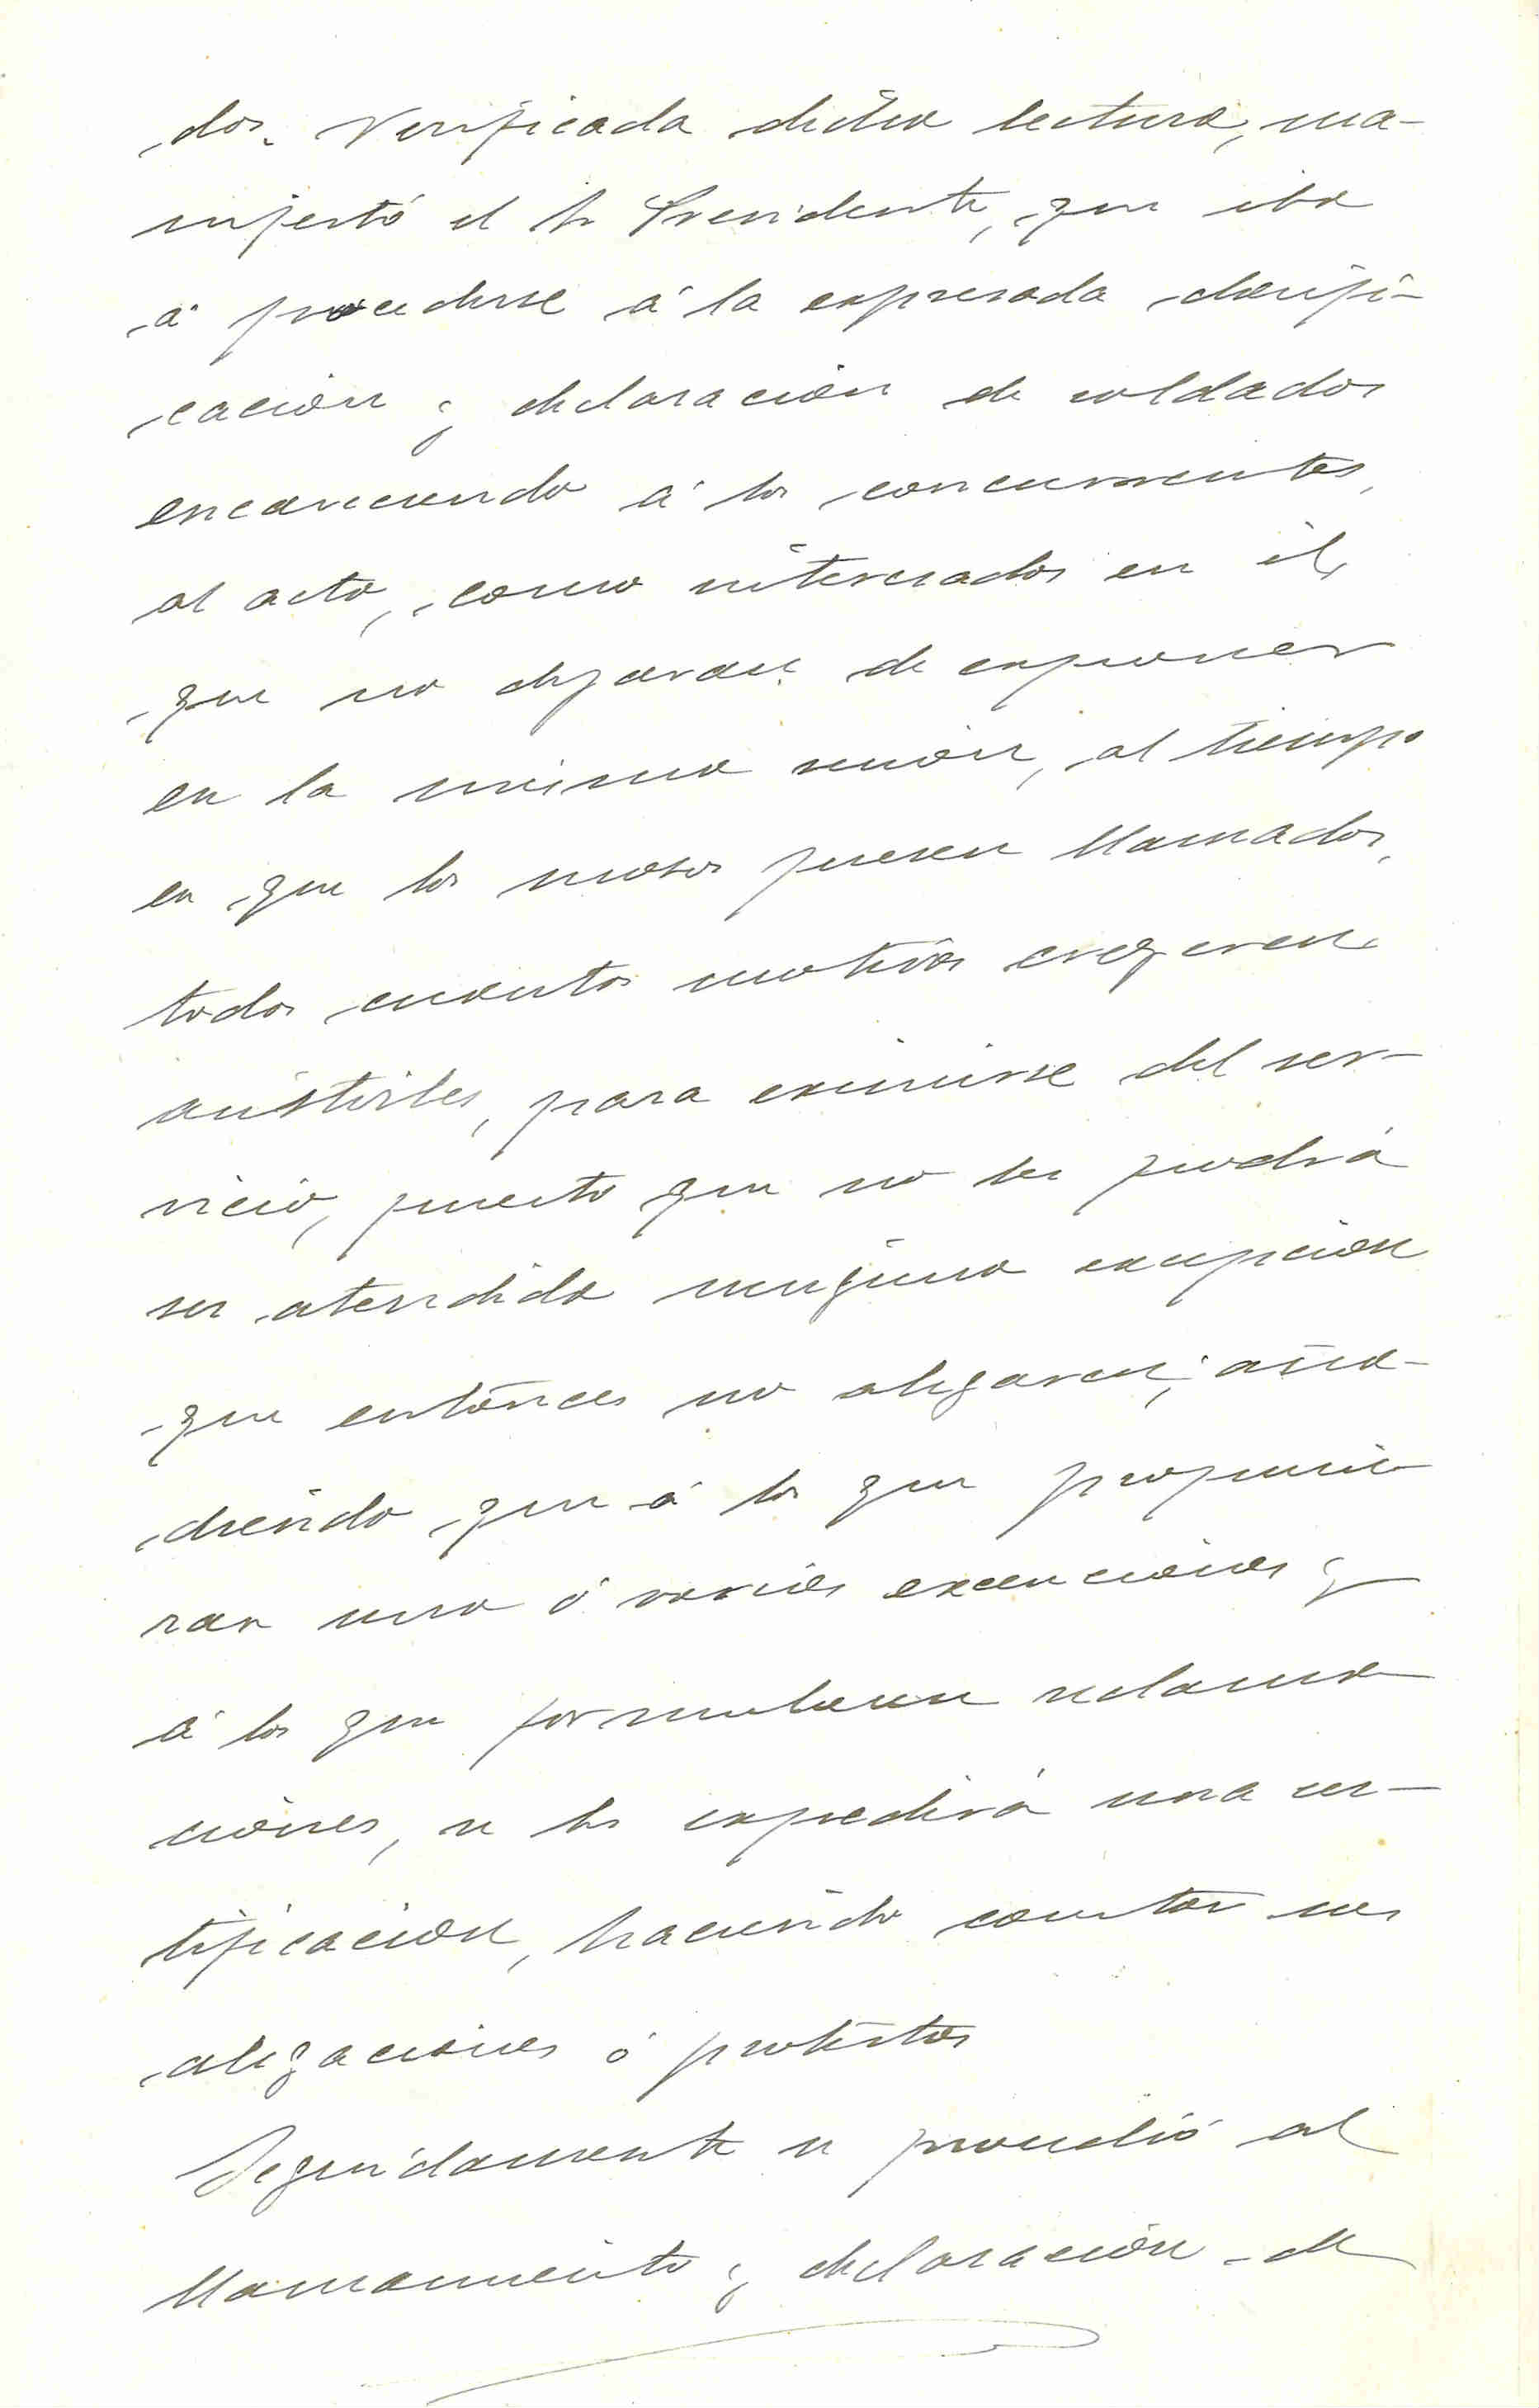 dos. Verificada dicha lectura, ma-
nifestó el Sr Presidente, que iba
á procederse á la expresada clasifi-
cación y declaración de soldados
encareciendo á los concurrentes,
al acto, como interesados en él,
que no dejaran de exponer
en la misma sesión, al tiempo
en que los mozos fuesen llamados,
todos cuantos motivos creyeren
asistirles, para eximirse del ser-
vicio, puesto que no les podrá
ser atendida ninguna excepción
que entónces no alegaren; aña-
diendo que á los que propusie
ran una ó varias excenciones y
á los que formulasen reclama
ciones, se les expedirá una cer-
tificación, haciendo constar sus
alegaciones ó protestas
Seguidamente se procedió al
llamamiento y declaración de